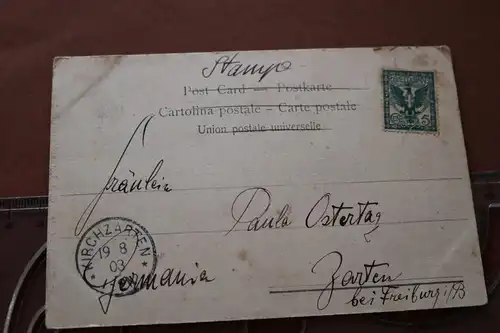 Stampe
Post Card — Postkarte
Cartolina postale – Carte postale
Union postale universelle
5 5
Fräulein
Paula Ostertag
KIRCHZARTEN
19 8
03
Zarten
Germania
bei Freiburg i/B